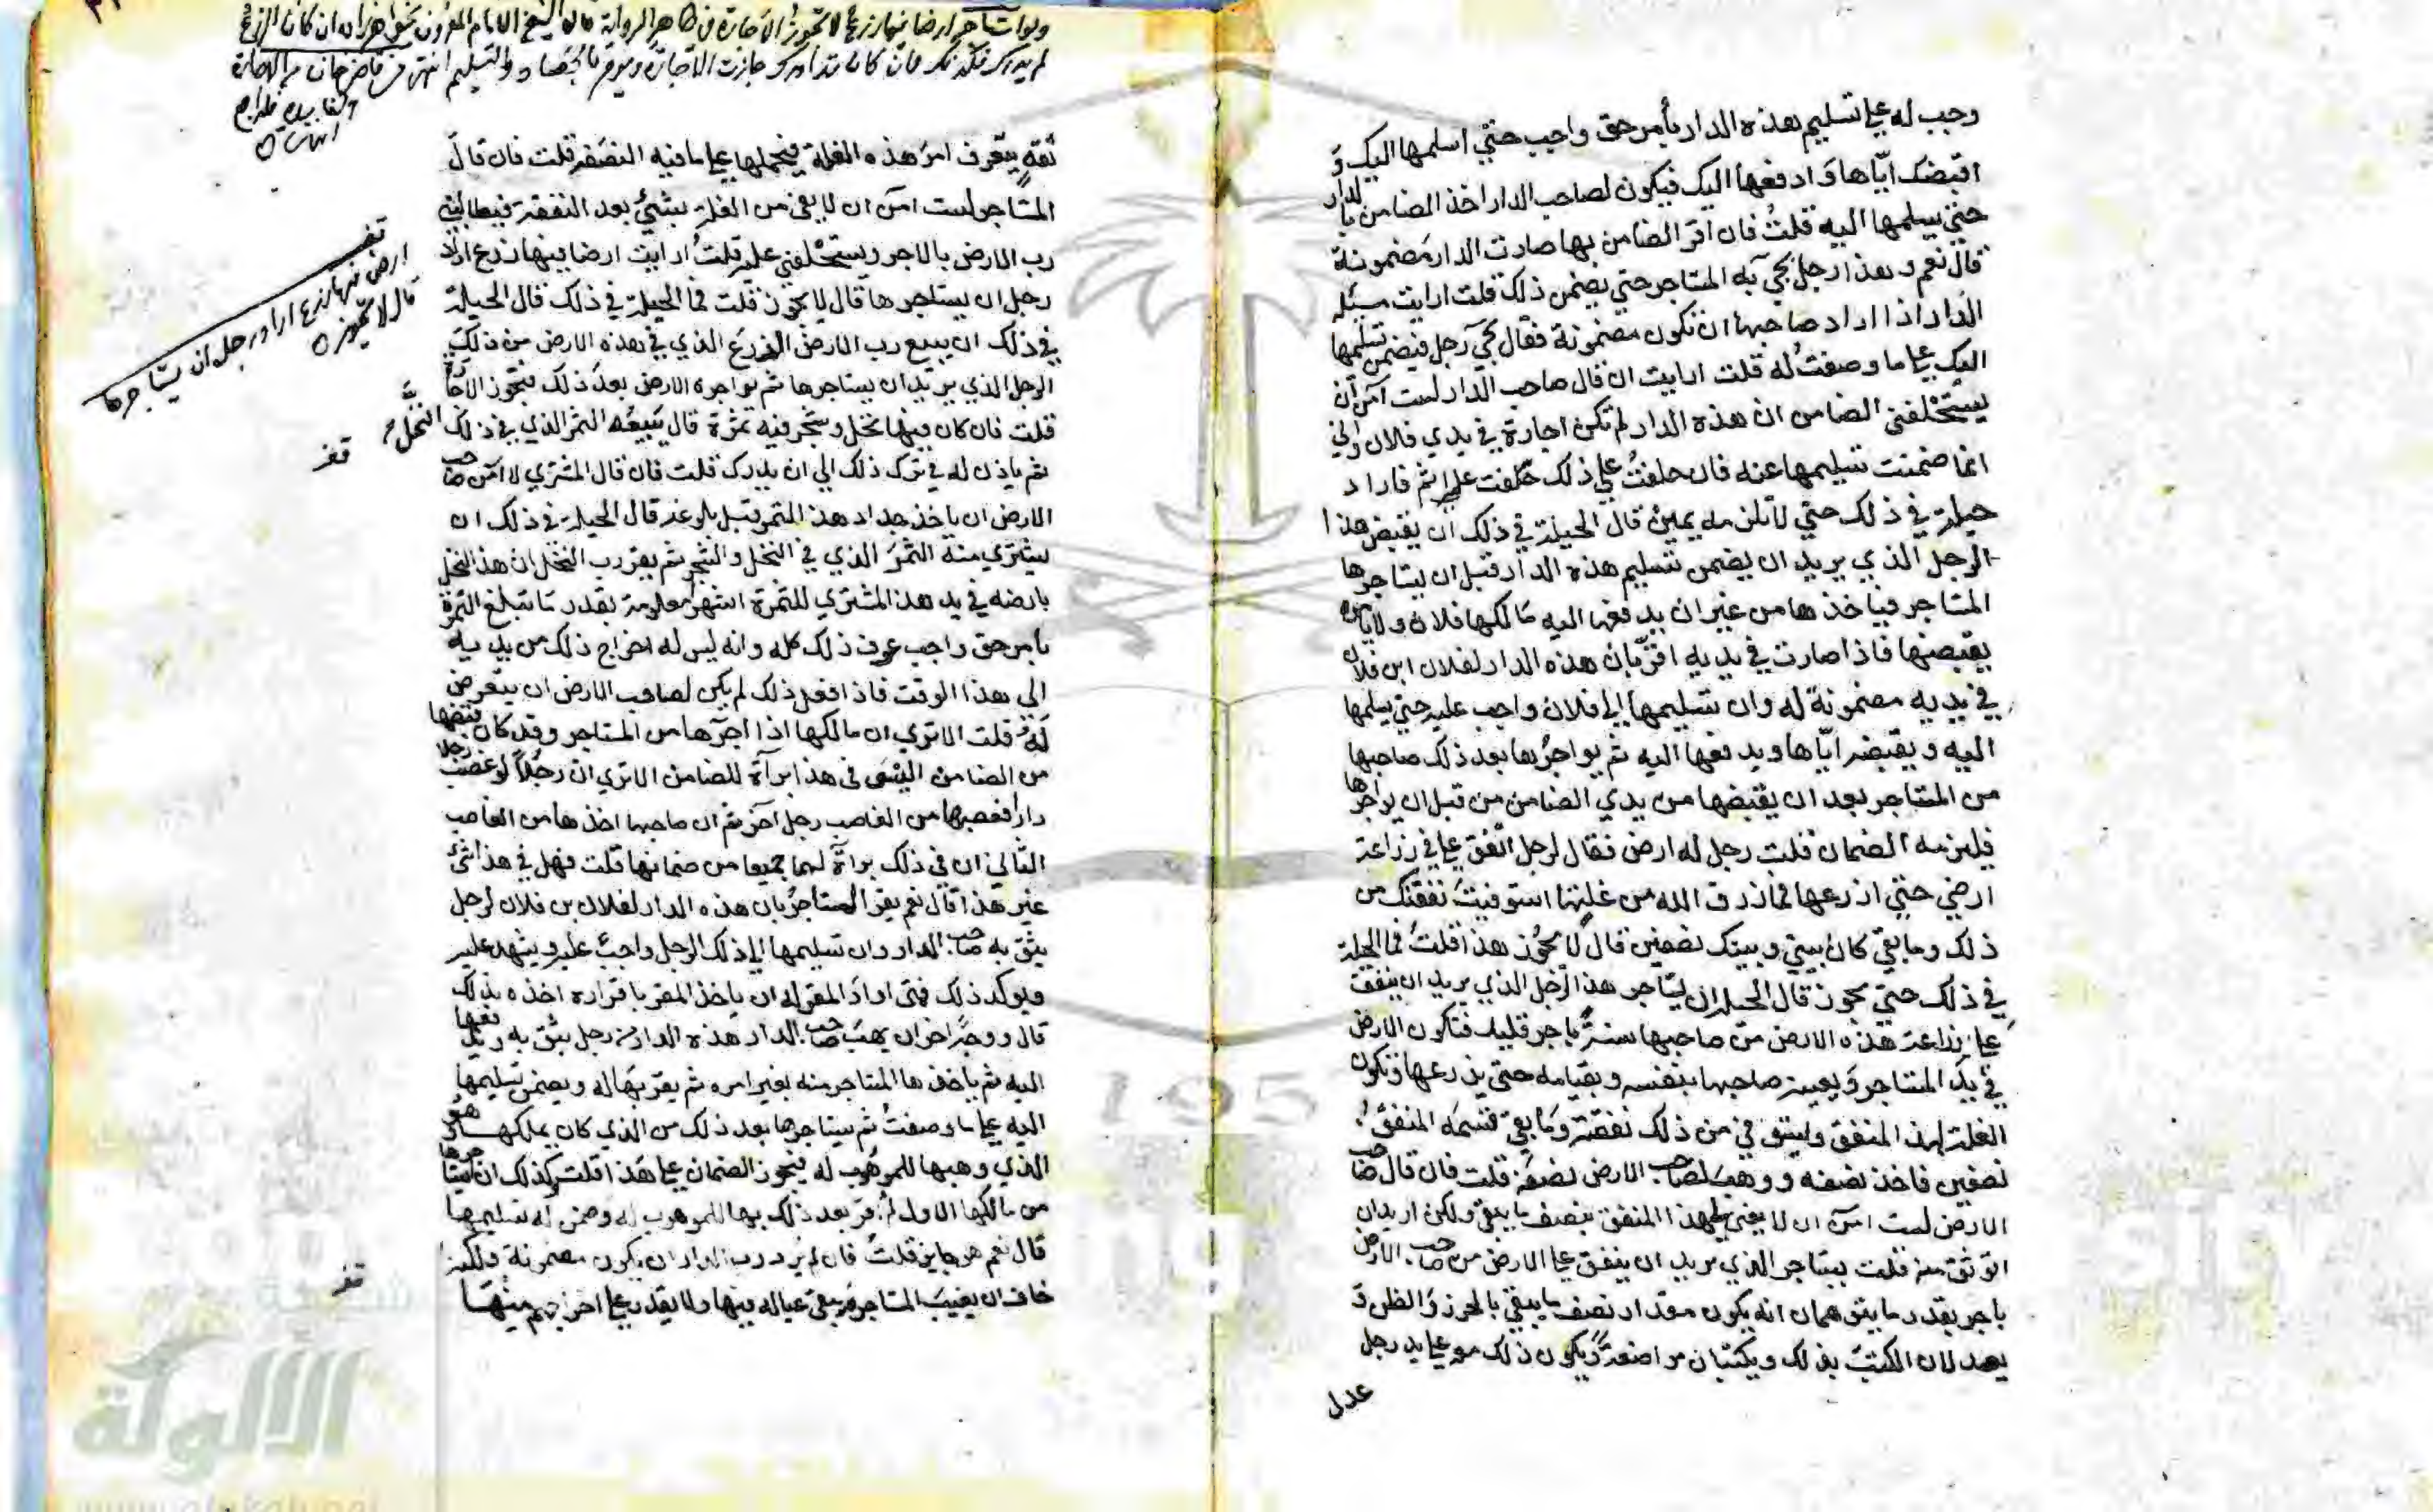 وجب له علي تسليم هذه الدار بأمر حق واجب حتي اسلمها اليك و
اقبضك اياها و ادفعها اليك فيكون لصاحب الدار اخذ الضامن بالدار
حتي يسلمها اليه قلت فان اقر الضامن بها صارت الدار مضمونة
قال نعم وهذا رجل يجيء به المستاجر حتي يضمن ذلك قلت ارايت مسئلة
الدار اذا اراد صاحبها ان تكون مضمونة فقال يجيء رجل فيضمن تسلمها
اليك علي ما وصفت له قلت ارايت ان قال صاحب الدار لست آمن ان
يستحلفني الضامن ان هذه الدار لم تكن اجارة في يدي فلان واني
انما ضمنت تسليمها عنه فان حلفت علي ذلك حلفت علي اثم فاراد
حيلة في ذلك حتي لا تلزمه يمين قال الحيلة في ذلك ان يقبض هذا
الرجل الذي يريد ان يضمن تسليم هذه الدار قبل ان يستاجرها
المستاجر فياخذها من غير ان يدفعها اليه مالكها فلان ولا يامره
بقبضها فاذا صارت في يديه اقر بان هذه الدار لفلان ابن فلان
في يديه مضمونة له وان تسليمها الي فلان واجب عليه حتي يسلمها
اليه ويقبضه اياها ويدفعها اليه ثم يواجرها بعد ذلك صاحبها
من المستاجر بعد ان يقبضها من يدي الضامن من قبل ان يواجرها
فيلزمه الضمان قلت رجل له ارض فقال لرجل انفق علي في زراعة
ارضي حتي ازرعها فما رزق الله من غلتها استوفيت نفقتك من
ذلك وما بقي كان بيني وبينك نصفين قال لا يجوز هذا قلت فما الحيلة
في ذلك حتي يجوز قال الحيلة ان يستاجر هذا الرجل الذي يريد ان ينفق
علي زراعة هذه الارض من صاحبها سنة باجر قليل فتكون الارض
في يد المستاجر ويعينه صاحبها بنفسه وبقيامه حتي يزرعها وتكون
الغلة لهذا المنفق وليستوفي من ذلك نفقته وما بقي قسمه المنفق
نصفين فاخذ نصفه ووهب لصاحب الارض نصفه قلت فان قال صاحب
الارض لست آمن ان لا يفي لي هذا المنفق بنصف ما يبقي ولكن اريد ان
اتوثق منه قلت يستاجر الذي يريد ان ينفق علي الارض من صاحب الارض
باجر بقدر ما يتوهمان انه يكون مقدار نصف ما يبقي بالحزر والظن و
يعدلان الكتب بذلك ويكتبان مواضعة ويكون ذلك علي يد رجل
عدل
ولو استاجر ارضا فيها زرع لا تجوز الاجارة في ظاهر الرواية قال الشيخ الامام المعروف بخواهرزاده ان كان الزرع
لم يدرك فكذلك فان كان قد ادرك جازت الاجارة ويؤمر بالحصاد والتسليم انتهى من قاضي خان من الاجارة
ثقة يتعرف امر هذه الغلة فيحملها علي ما فيه النصفة قلت فان قال
المستاجر لست آمن ان لا يبقي من الغلة شيء بعد النفقة فيطالبني
رب الارض بالاجر ويستحلفني عليه قلت ارايت ارضا فيها زرع اراد
رجل ان يستاجرها قال لا يجوز قلت فما الحيلة في ذلك قال الحيلة
في ذلك ان يبيع رب الارض الزرع الذي في هذه الارض من ذلك
الرجل الذي يريد ان يستاجرها ثم يواجره الارض بعد ذلك فتجوز الاجارة
قلت فان كان فيها نخل وشجر فيه ثمرة قال يبيعه الثمر الذي في ذلك النخل
ثم ياذن له في ترك ذلك الي ان يدرك قلت فان قال المشتري لا آمن صاحب
الارض ان ياخذ جداد هذا الثمر قبل بلوغه قال الحيلة في ذلك ان
يشتري منه الثمر الذي في النخل والشجر ثم يقر رب النخل ان هذا النخل
بارضه في يد هذا المشتري للثمرة اشهر معلومة بقدر ما تبلغ الثمرة
بامر حق واجب عرف ذلك كله وانه ليس له اخراج ذلك من يديه
الي هذا الوقت فاذا فعل ذلك لم يكن لصاحب الارض ان يتعرض
له قلت الا تري ان مالكها اذا اجرها من المستاجر وقد كان قبضها
من الضامن اليس في هذا براة للضامن الا تري ان رجلا لو غصب رجلا
دارا فغصبها من الغاصب رجل آخر ثم ان صاحبها اخذها من الغاصب
الثاني ان في ذلك براة لهما جميعا من ضمانها قلت فهل في هذا شيء
غير هذا قال نعم يقر المستاجر بان هذه الدار لفلان بن فلان لرجل
يثق به صاحب الدار وان تسليمها الي ذلك الرجل واجب عليه ويشهد عليه
ويوكد ذلك فمتي اراد المقر له ان ياخذ المقر باقراره اخذه بذلك
قال ووجه اخر ان يهب صاحب الدار هذه الدار من رجل يثق به ويدفعها
اليه ثم ياخذها المستاجر منه بغير امره ثم يقر بها له ويضمن تسليمها
اليه علي ما وصفت ثم يستاجرها بعد ذلك من الذي كان يملكها وهو
الذي وهبها للموهوب له فيجوز الضمان علي هذا قلت وكذلك ان استاجرها
من مالكها الاول ثم اقر بعد ذلك بها للموهوب له وضمن له تسليمها
قال نعم هو جايز قلت فان لم يرد رب الدار ان يكون مضمونة ولكنه
خاف ان يغيب المستاجر ويبقي عياله فيها ولا يقدر علي اخراجهم منها
ارض فيها زرع اراد رجل ان يستاجرها
قال لا يجوز
195
شبكة
الألوكة